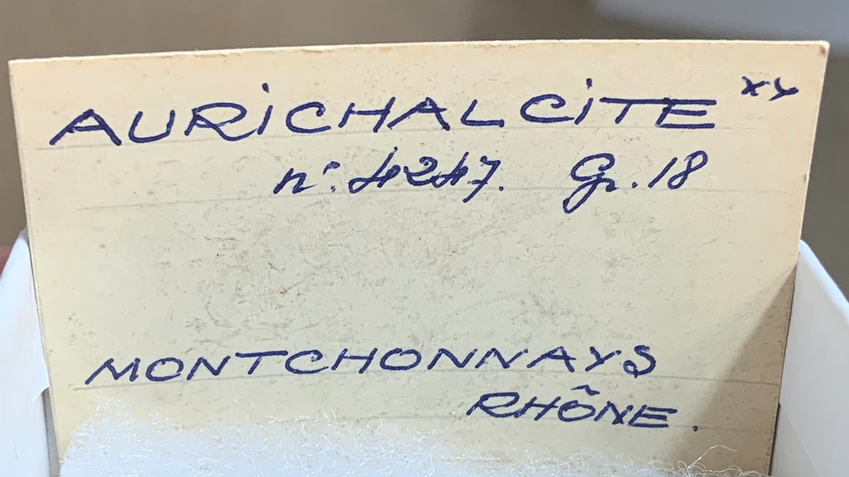 AURiCHALCiTE xx
n°. 4247. Gr. 18
MONTCHONNAYS
RHÔNE.